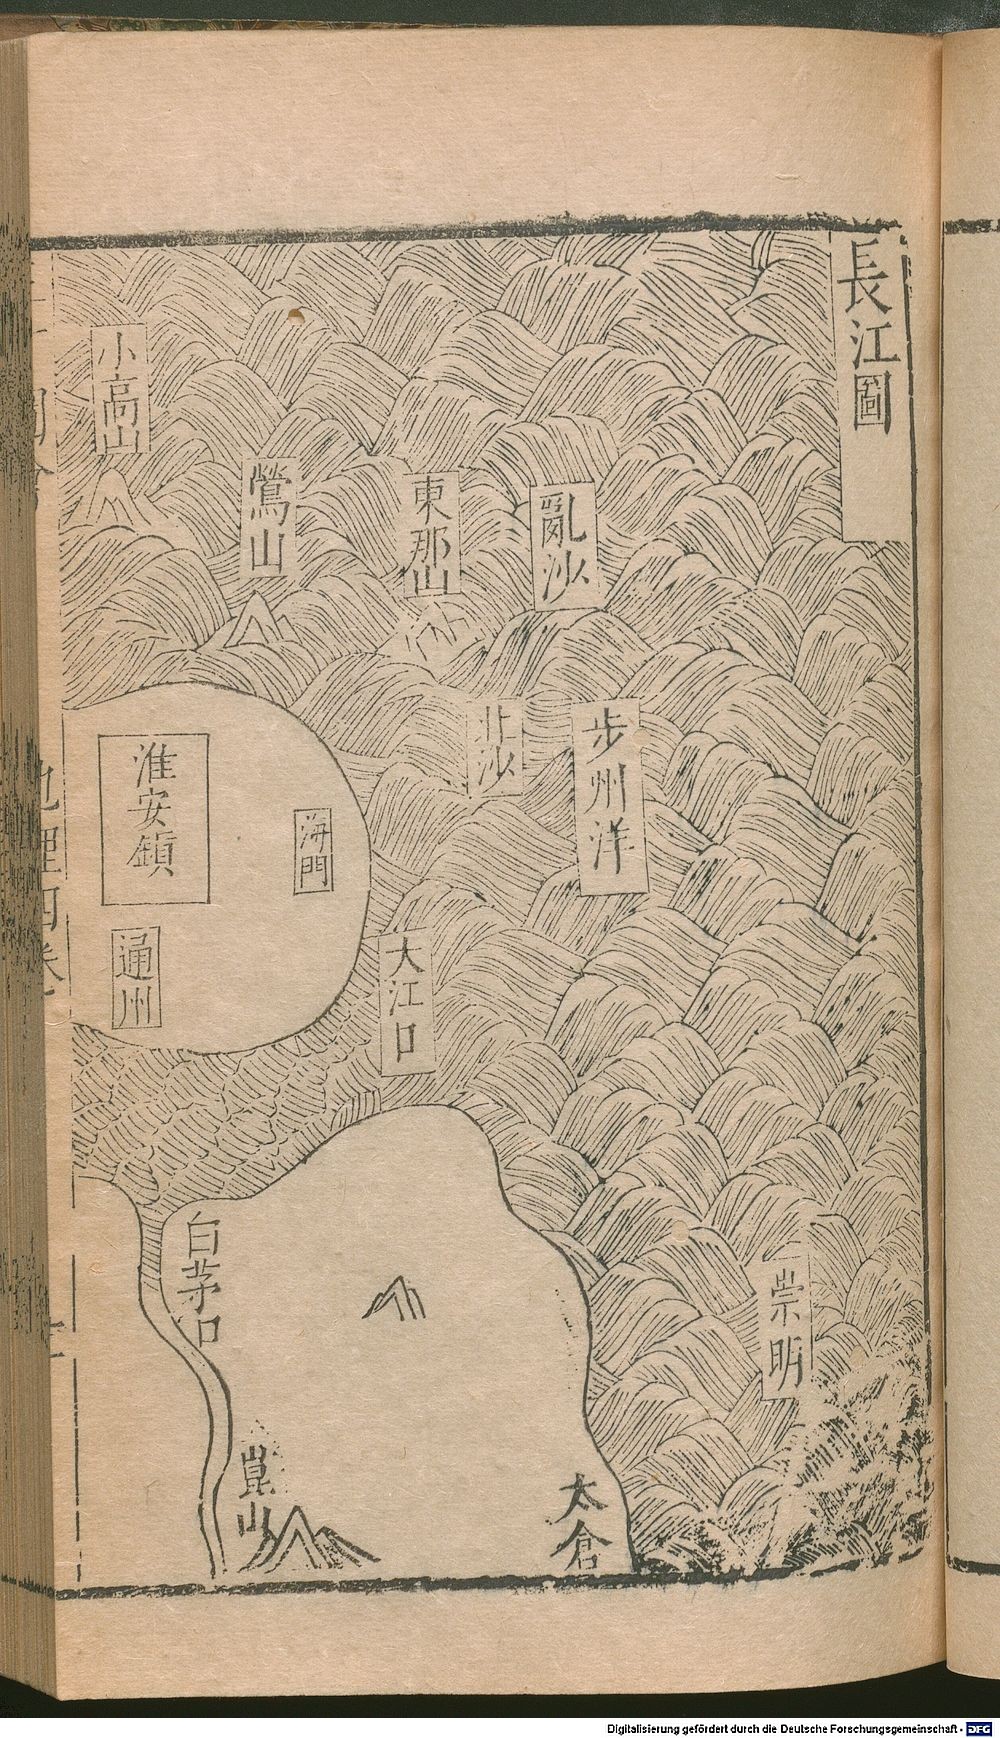 長江圖
亂沙
步州洋
崇明
東那山
北沙
大江口
太倉
鶯山
海門
小高山
淮安鎮
通州
白茅口
崑山
地理四卷
Digitalisierung gefördert durch die Deutsche Forschungsgemeinschaft - DFG